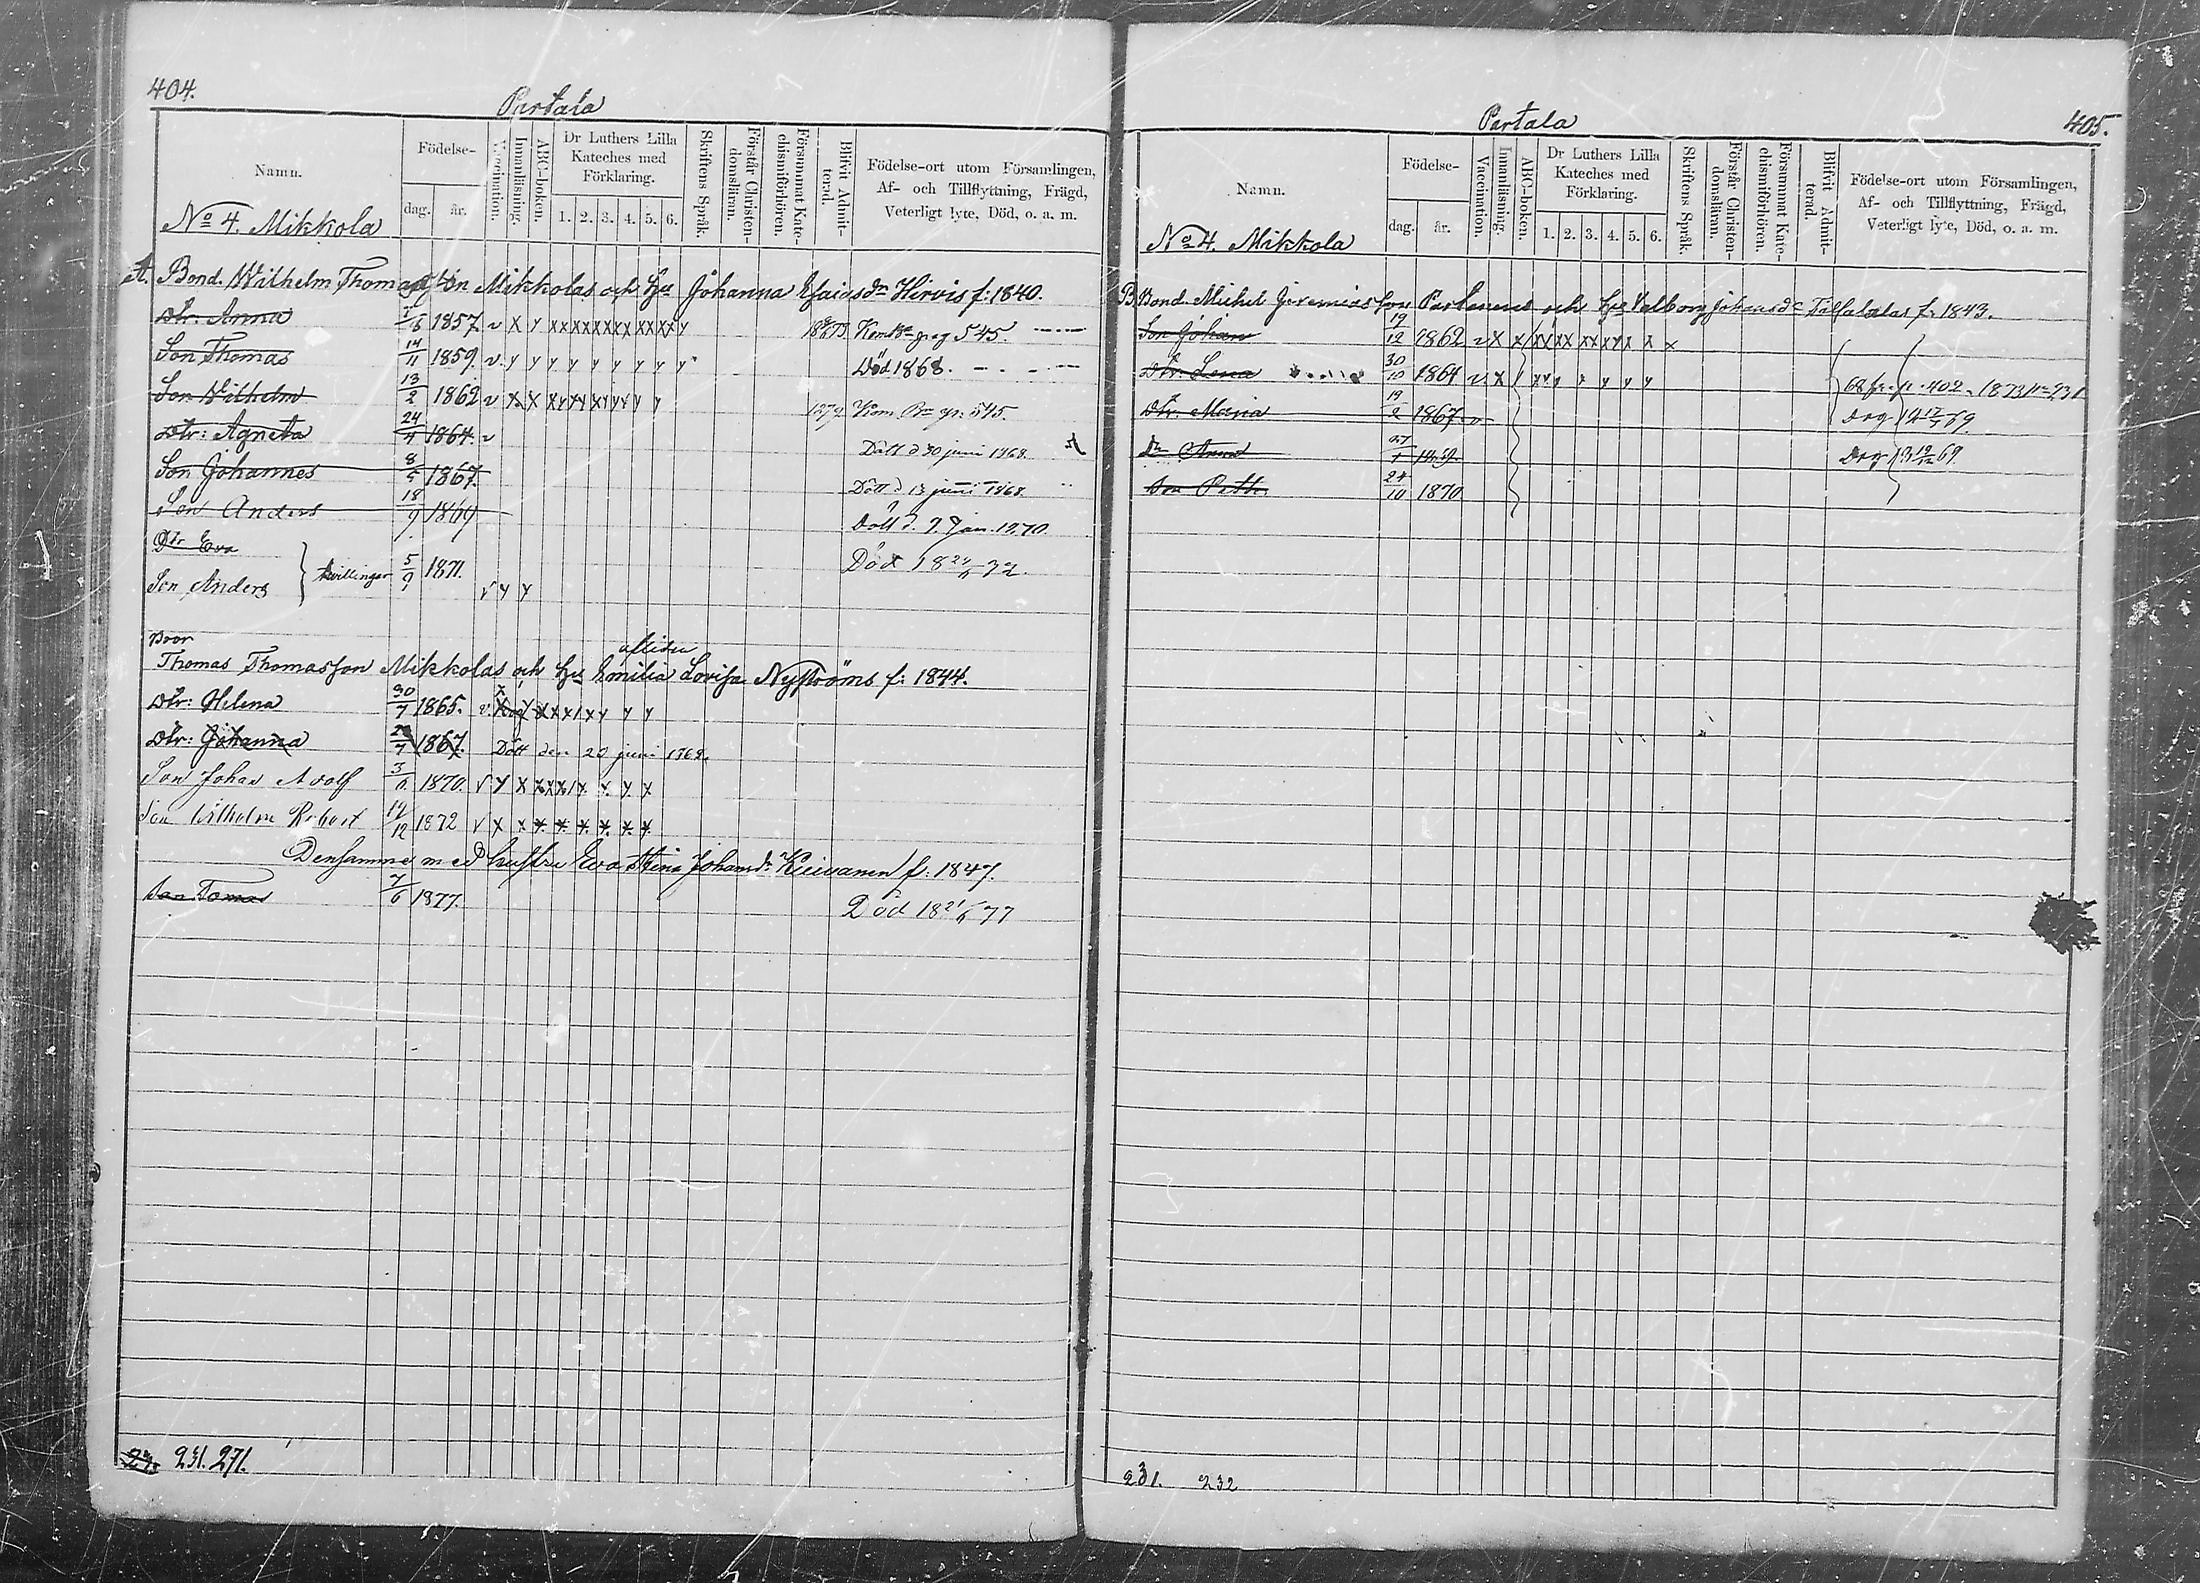 404.
Partala
Namn.
Födelse-
dag.
år.
Vaccination.
Innanläsning.
ABC-boken.
Dr Luthers Lilla
Kateches med
Förklaring.
1. 2. 3. 4. 5. 6.
Skriftens Språk.
Förstår Christen-
domsläran.
Försummat Kate-
chismiförhören.
Blifvit Admit-
terad.
Födelse-ort utom Församlingen,
Af- och Tillflyttning, Frägd,
Veterligt lyte, Död, o. a. m.
No 4. Mikkola
A. Bond. Wilhelm Thomasson Mikkolas och Hu Johanna Esaiasdr Hirvis f: 1840.
Dtr. Anna 1857. v x y 545.
Son Thomas 14/11 1859. v. y y y y y y y y y Död 1868.
Son Wilhelm 13/2 1862 v x x 545.
Dtr: Agneta 24/4 1864. v Dött d 30 juni 1868.
Son Johannes 8/5 1867. Dött d 13 juni 1868.
Son Anders 18/9 1869 Dött d. 9 Jan. 1870
Dtr Eva
tvillingar 5/9 1871. Död
Son Anders v y y
afliden
Thomas Thomasson Mikkolas och Hu Emilia Lovisa Nyströms f: 1844.
Dtr: Helena 30/7 1865. v.
Dtr: Johanna 1867. Dött den 20 juni 1868.
Son Johan Adolf 1870. v y x
Son Wilhelm Robert 12 1872 v x x
Densamme med hustru Eva Stina Johansdr f: 1847.
Son Tomas 7/6 1877. Död 18 21/6 77
231. 271.
Partala
405.
Namn.
Födelse-
dag.
år.
Vaccination.
Innanläsning.
ABC-boken.
Dr Luthers Lilla
Kateches med
Förklaring.
1. 2. 3. 4. 5. 6.
Skriftens Språk.
Förstår Christen-
domsläran.
Försummat Kate-
chismiförhören.
Blifvit Admit-
terad.
Födelse-ort utom Församlingen,
Af- och Tillflyttning, Frägd,
Veterligt lyte, Död, o. a. m.
No 4. Mikkola
B Bond. Michel Jeremiasson Partanens och Hu Valborg Johansdr f: 1843.
Son Johan 19/12 1862 v x x
Dtr: Lena 30/10 1864 v x 402. 1873
Dtr. Maria 19/2 1867. v 69.
Dr Anna 69.
Son Petter 24/10 1870
231. 232